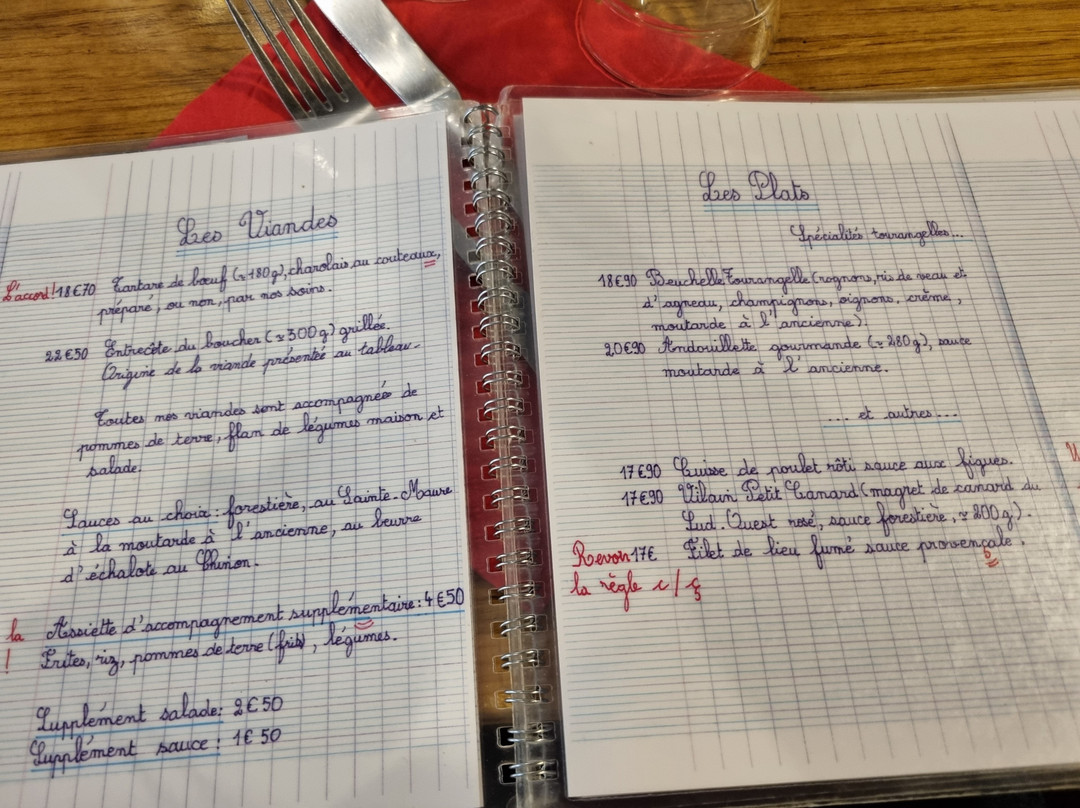 Les Viandes
L'accord! 18€70 Tartare de bœuf (≈180g), charolais au couteaux,
préparé, ou non, par nos soins.
22€50 Entrecôte du boucher (≈300g) grillée.
Origine de la viande présentée au tableau.
Toutes nos viandes sont accompagnées de
pommes de terre, flan de légumes maison et
salade.
Sauces au choix : forestière, au Sainte-Maure
à la moutarde à l'ancienne, au beurre
d'échalote au Chinon.
la Assiette d'accompagnement supplémentaire : 4€50
! Frites, riz, pommes de terre (frits), légumes.
Supplément salade : 2€50
Supplément sauce : 1€50
Les Plats
Spécialités tourangelles...
18€90 Beuchelle Tourangelle (rognons, ris de veau et
d'agneau, champignons, oignons, crème,
moutarde à l'ancienne).
20€90 Andouillette gourmande (≈280g), sauce
moutarde à l'ancienne.
... et autres ...
17€90 Cuisse de poulet rôti sauce aux figues.
17€90 Vilain Petit Canard (magret de canard du
Sud. Ouest rosé, sauce forestière, ≈200g).
Revoir 17€ Filet de lieu fumé sauce provençale.
la règle c/ç